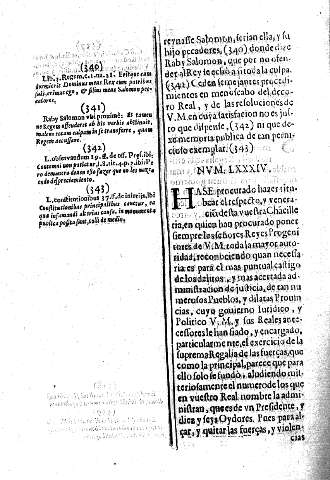 (340)
Lib. 3. Regem. c. 1. n. 21. Eritque cum
dormierit Dominus meus Rex cum patribus
suis, erimus ego, & filius meus Salomon pec-
catores.
(341)
Raby Salomon ubi proximè. At tamen
ne Regem offenderet ob his verbis abstinuit,
malens tectam culpam in se transferre, quàm
Regem accusare.
(342)
L. observandum 19. ff. de off. Præsid. ibi:
(343)
L. constitutionibus
reynasse Salomon, serian ella, y su
hijo pecadores, (340) donde dize
Raby Salomon, que por no ofen-
der al Rey se echò a si toda la culpa.
(341) Cedен semejantes procedi-
mientos en menoscabo del deco-
ro Real, y de las resoluciones de
V. M. en cuya satisfacion no es jus-
to que dispense, (342) ni que de-
xe memoria publica de tan perni-
cioso exemplar. (343)
NVM. LXXXIV.
HASE procurado hazer titu-
bear el respecto, y venera-
cion desta vuestra Chācille-
ria, en quien han procurado poner
siempre los señores Reyes Progeni
tores de V. M. toda la mayor auto-
ridad, reconociendo quan necessa
ria es para el mas puntual castigo
de los delitos, y mas acertada ad-
ministracion de justicia, de tan nu
merosos Pueblos, y dilatas Provin
cias, cuyo govierno Iuridico, y
Politico V. M. y sus Reales ante-
cessores le han fiado, y encargado,
particularmente, el exercicio de la
suprema Regalia de las fuerças, que
como la principal, parece que para
ello solo se fundò, aludiendo mis-
teriosamente el numero de los que
en vuestro Real nombre la admi-
nistran, que es de vn Presidente, y
diez y seys Oydores. Pues para al-
çar, y quitar las fuerças, y violen-
cias